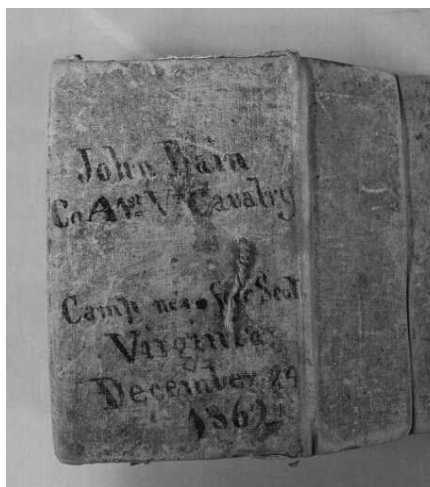 John Bain
Co A 1st Vt Cavalry
Camp Scot
Virginia
December
1862